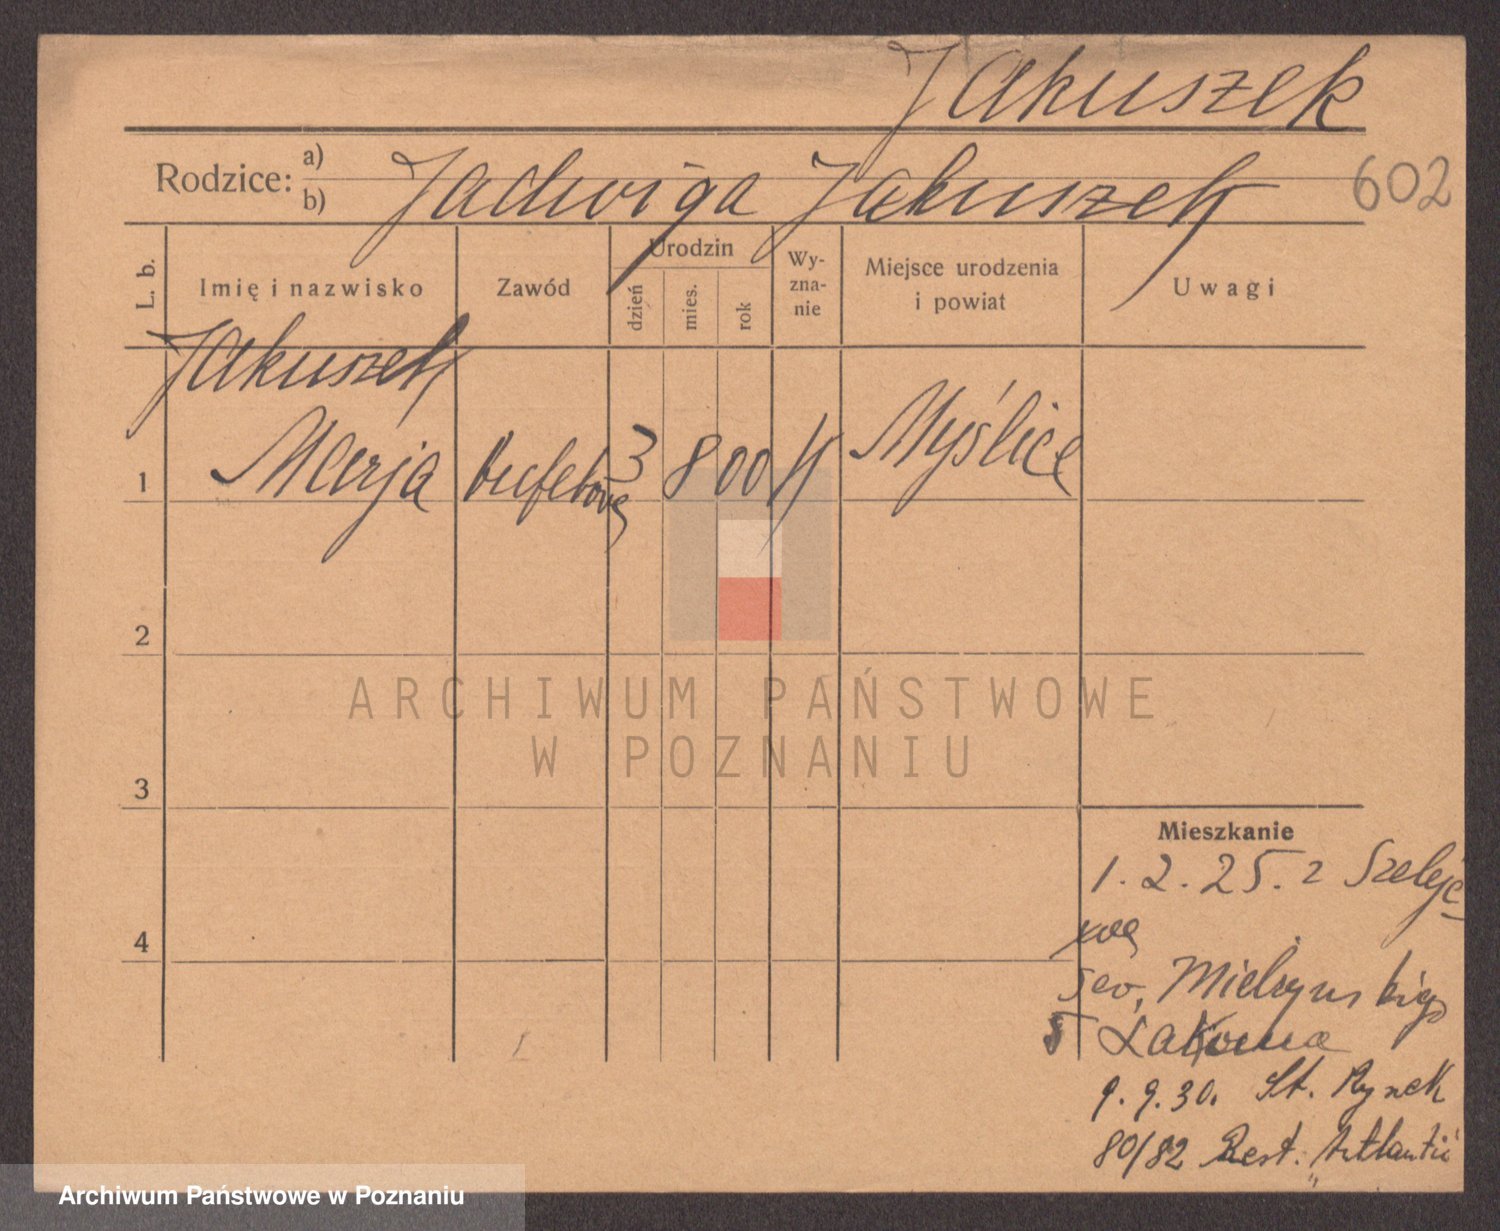 Jakuszek
Rodzice: a)
b) Jadwiga Jakuszek
602
L. b. Imię i nazwisko Zawód Urodzin dzień mies. rok Wy-zna-nie Miejsce urodzenia i powiat Uwagi
Jakuszek
1 Marja Bufetowa 3 8 00 K Myślice
2
ARCHIWUM PAŃSTWOWE
W POZNANIU
3
Mieszkanie
1.2.25. z Szeleje
4
sev. Mielżyńskiego
5 Łakoma
9.9.30. St. Rynek
80/82 Rest. "Atlantic"
Archiwum Państwowe w Poznaniu